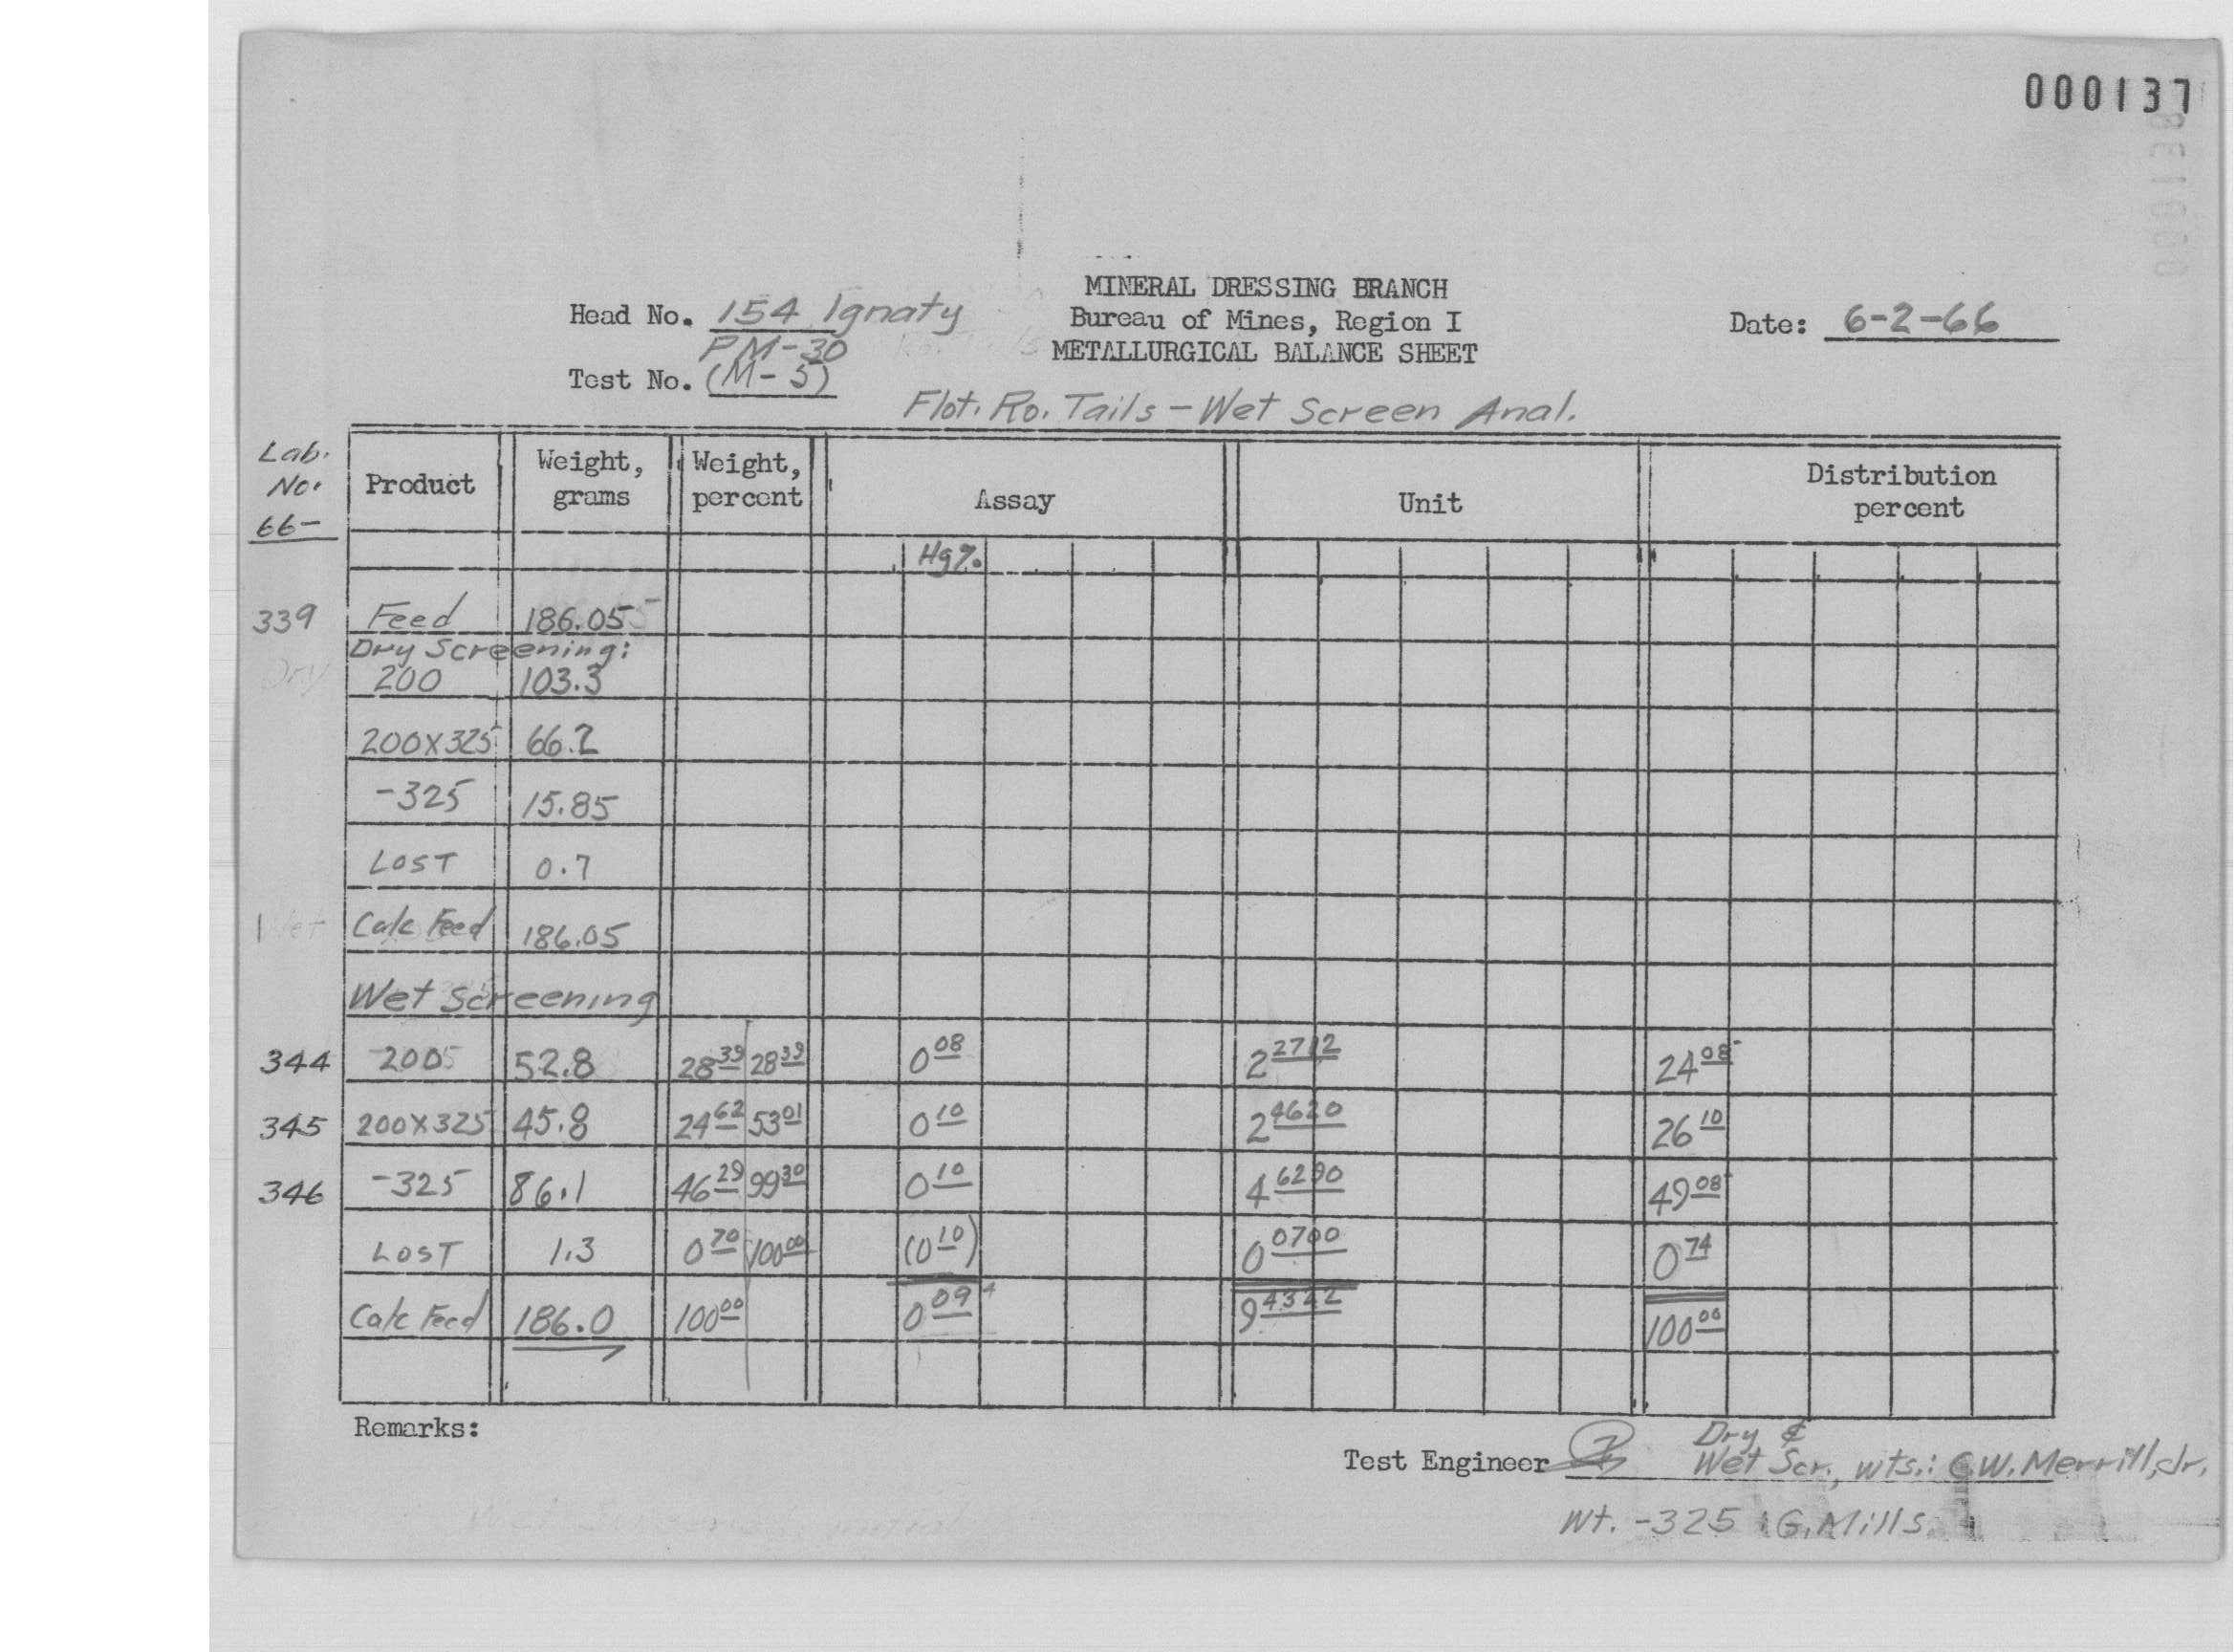 000137
MINERAL DRESSING BRANCH
Head No. 154 Ignaty Bureau of Mines, Region I Date: 6-2-66
PM-30 METALLURGICAL BALANCE SHEET
Test No. (M-5)
Flot. Ro. Tails - Wet Screen Anal.
Lab. No. 66- Product Weight, grams Weight, percent Assay Unit Distribution percent
Hg%
339 Feed 186.05
Dry Screening:
200 103.3
200X325 66.2
-325 15.85
LOST 0.7
Calc Feed 186.05
Wet Screening
344 200 52.8 28 39 28 39 0 08 2 2712 24 08
345 200X325 45.8 24 62 53 01 0 10 2 4620 26 10
346 -325 86.1 46 29 99 30 0 10 4 6290 49 08
LOST 1.3 0 70 100 00 (0 10) 0 0700 0 74
Calc Feed 186.0 100 00 0 09 4 9 4322 100 00
Remarks:
Dry &
Test Engineer Wet Scr., wts.: C.W. Merrill, Jr.
Wt. -325 : G. Mills